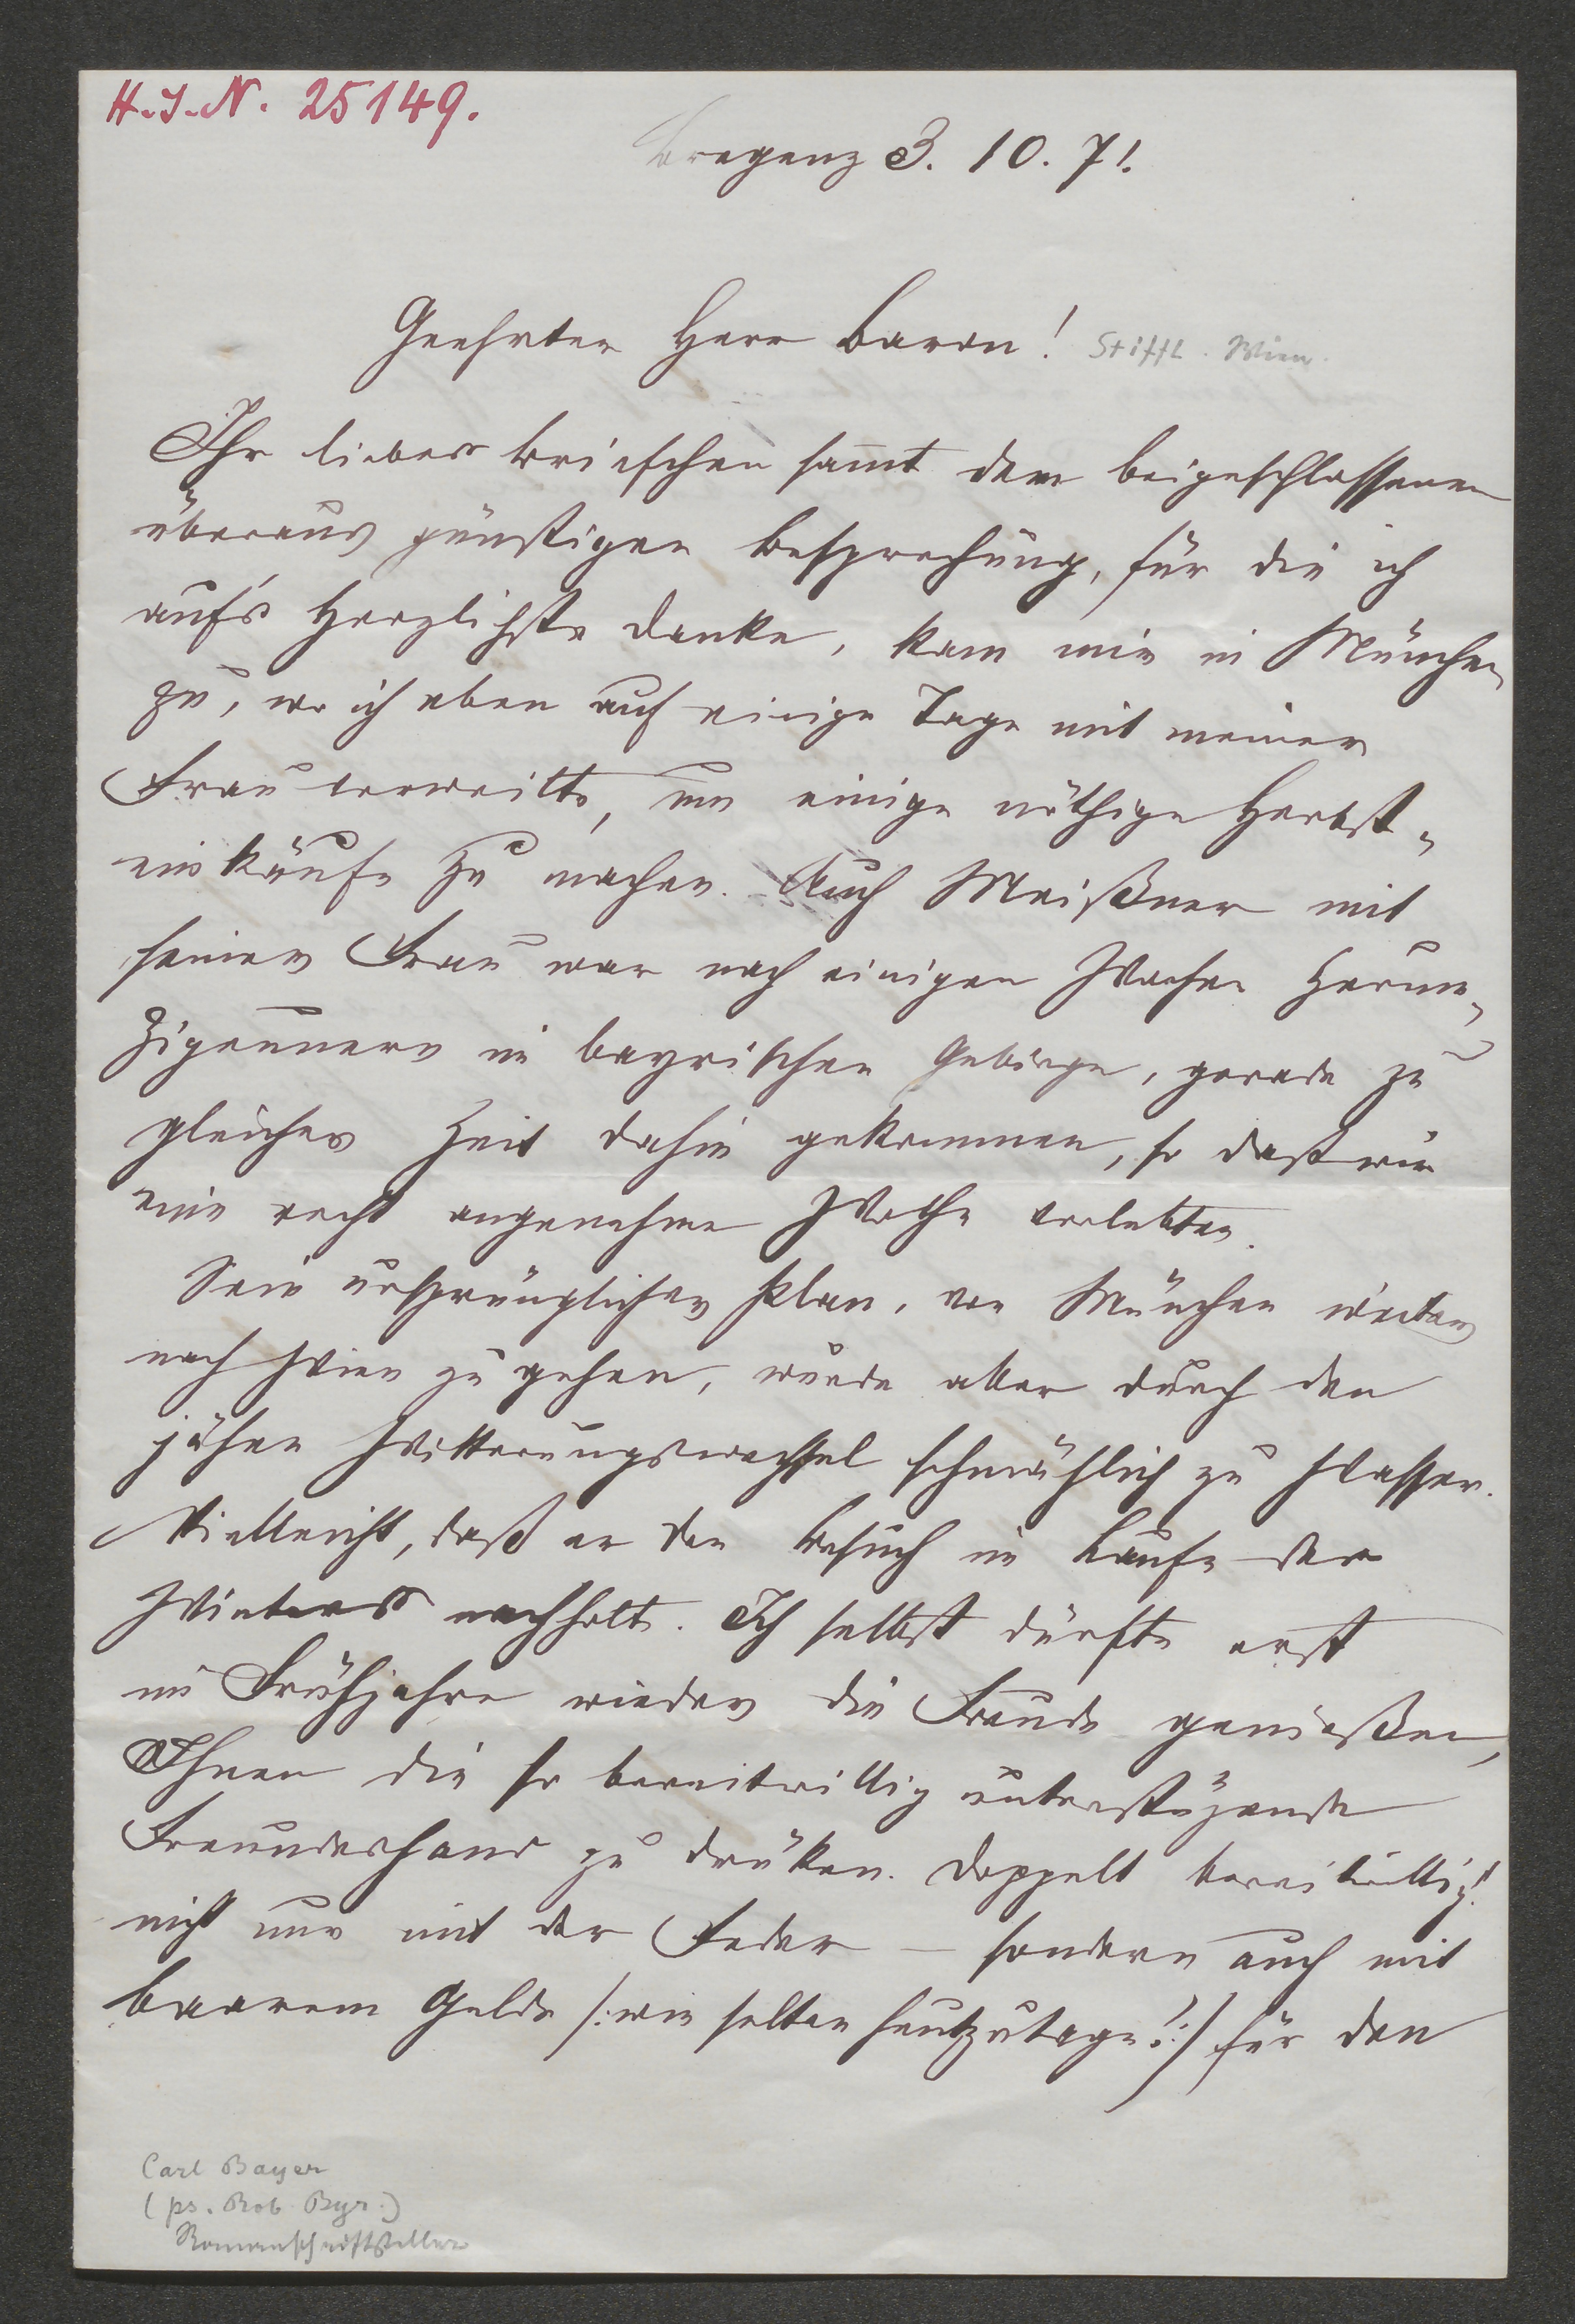 H.I.N. 25149.
Bregenz 3. 10. 71.
Geehrter Herr Baron! Stifft. Wien.
Ihr liebes Briefchen sammt dem beigeschlossenen
überaus günstigen Besprechung, für die ich
auf's Herzlichste danke, kam mir in München
zu, wo ich eben auf einige Tage mit meiner
Frau verweilte, um einige nöthige Herbst-
einkäufe zu machen. Auch Meißner mit
seiner Frau war nach einigen Wochen Herum-
Zigeunerns im bayrischen Gebirge, gerade zu
gleicher Zeit dahin gekommen, so daß wir
eine recht angenehme Woche verlebten.
Sein ursprünglicher Plan, von München weiter
nach Wien zu gehen, wurde aber durch den
jähen Witterungswechsel schmählich zu Wasser.
Vielleicht, daß er den Besuch im Laufe des
Winters nachholt. Ich selbst dürfte erst
im Frühjahre wieder die Freude genießen,
Ihnen die so bereitwillig unterstüzende
Freundeshand zu drüken. Doppelt bereitwillig!
nicht nur mit der Feder — sondern auch mit
baarem Gelde /: wie selten heutzutage! :/ für den
Carl Bayer
(ps. Rob. Byr.)
Romanschriftsteller